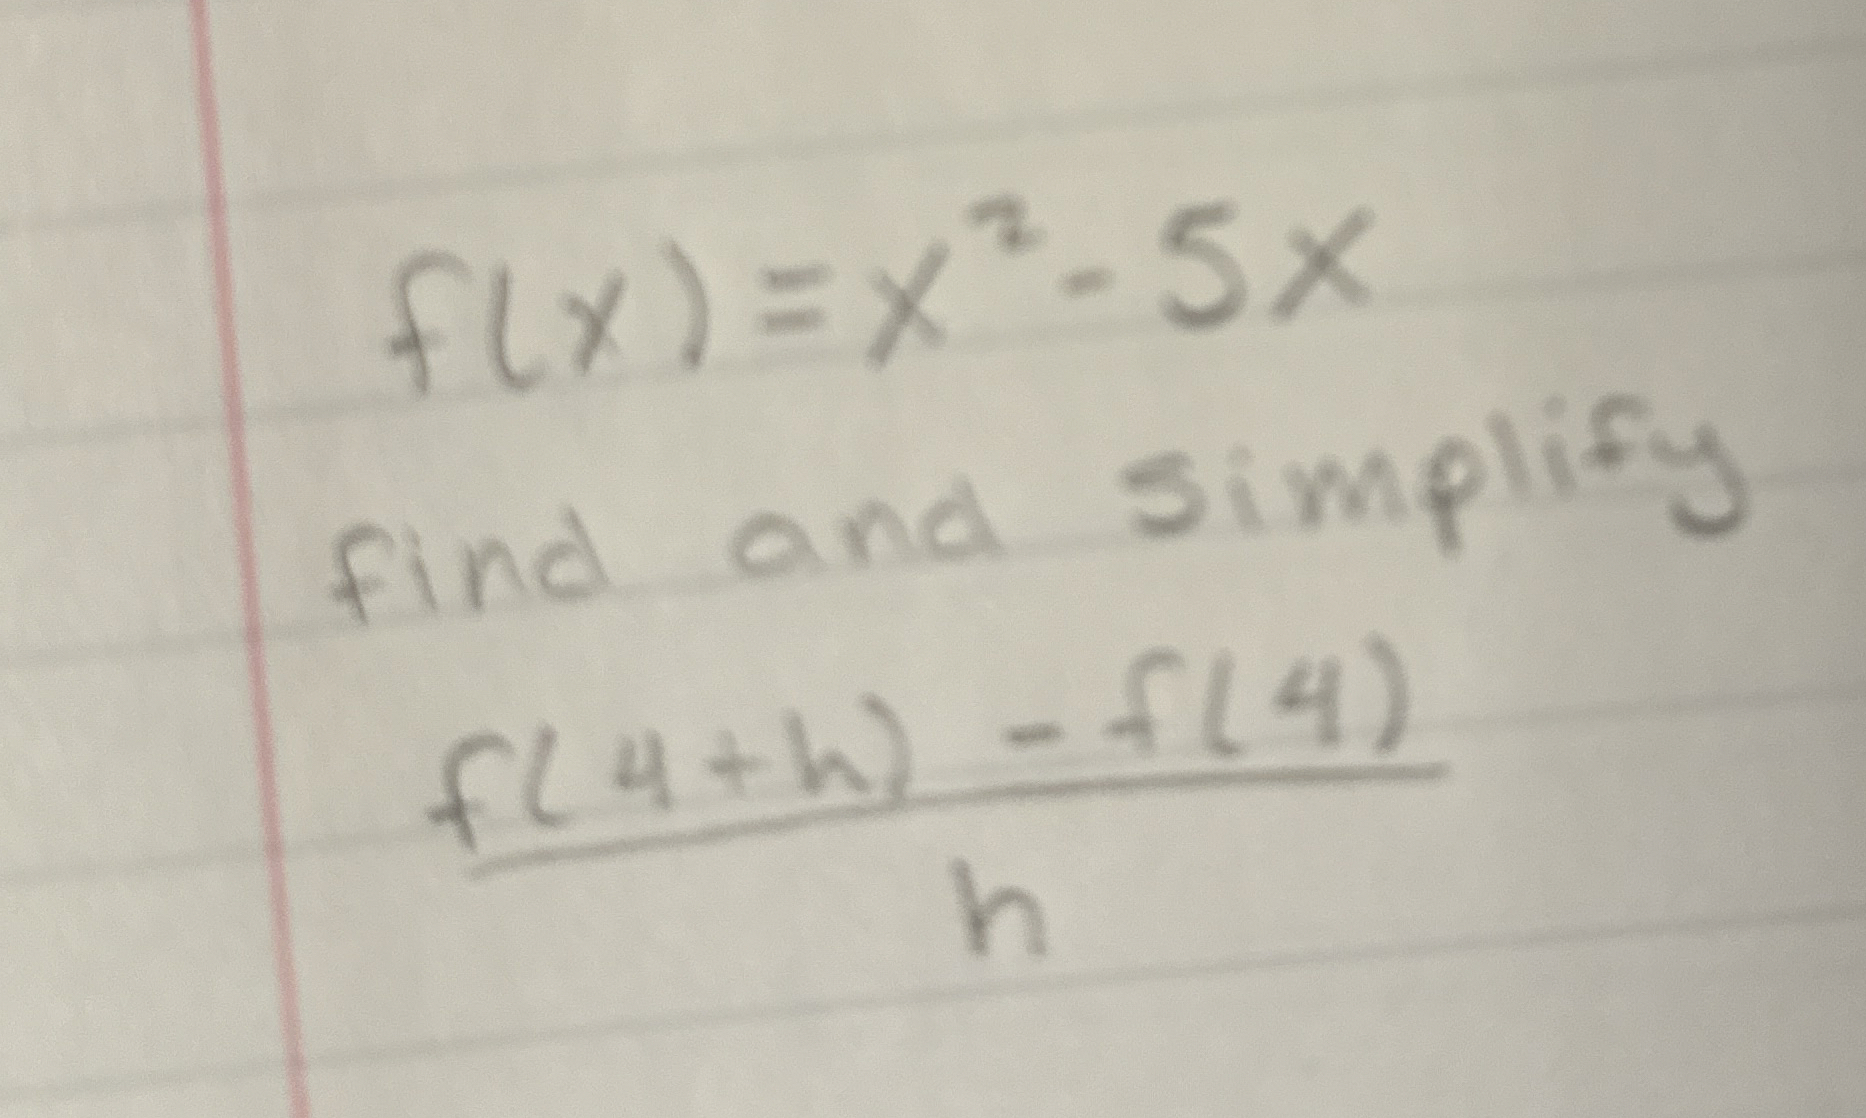 f(x) = x² - 5x
find and simplify
f(4+h) - f(4)
h